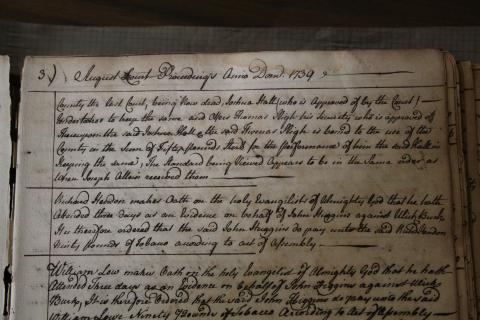 3) August Court Proceedings Anno Dom. 1739
County the last Court, being Now dead, Joshua Hall (who is approved of by the Court)
Undertakes to keep the same and Offers Thomas Sligh his Security who is approved of
Thereupon the said Joshua Hall & the said Thomas Sligh is bound to the use of the
County in the Sum of Fifty pounds Each for the performance of him the said Hall in
Keeping the same; The Standard being Viewed Appears to be in the Same order as
When Joseph Allein received them
Richard Hendon makes Oath on the holy Evangilists of Almighty God that he hath
Attended three days as an Evidence on behalf of John Higgins against Ulick Burk
It is therefore ordered that the said John Higgins do pay unto the said Richd Hendon
Ninty pounds of Tobaco according to act of Assembly
William Low makes Oath on the holy Evangelist of Almighty God that he hath
Attended Three days as an Evidence on behalf of John Higgins against Ulick
Burk, It is therefore Ordered that the said John Higgins do pay unto the said
William Lowe Ninety Pounds of Tobacco According to Act of Assembly